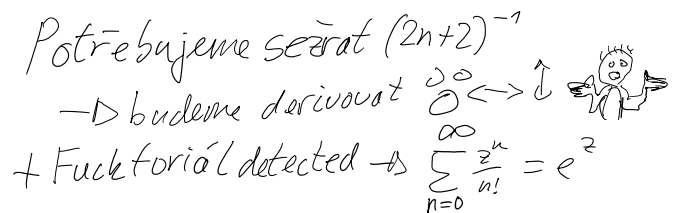 Potřebujeme sežrat (2n+2)⁻¹
→ budeme derivovat ↔ ↕
+ Fucktoriál detected → ∞ ∑ n=0 zⁿ/n! = e^z